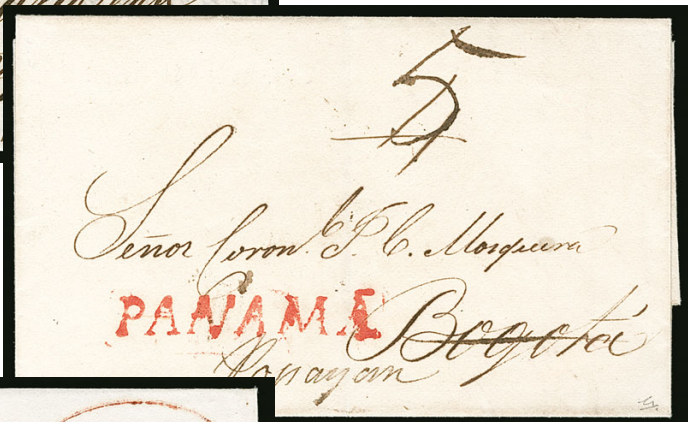 5
Señor Coron.l T. C. Mosquera
PANAMÁ
Bogotá
Popayan